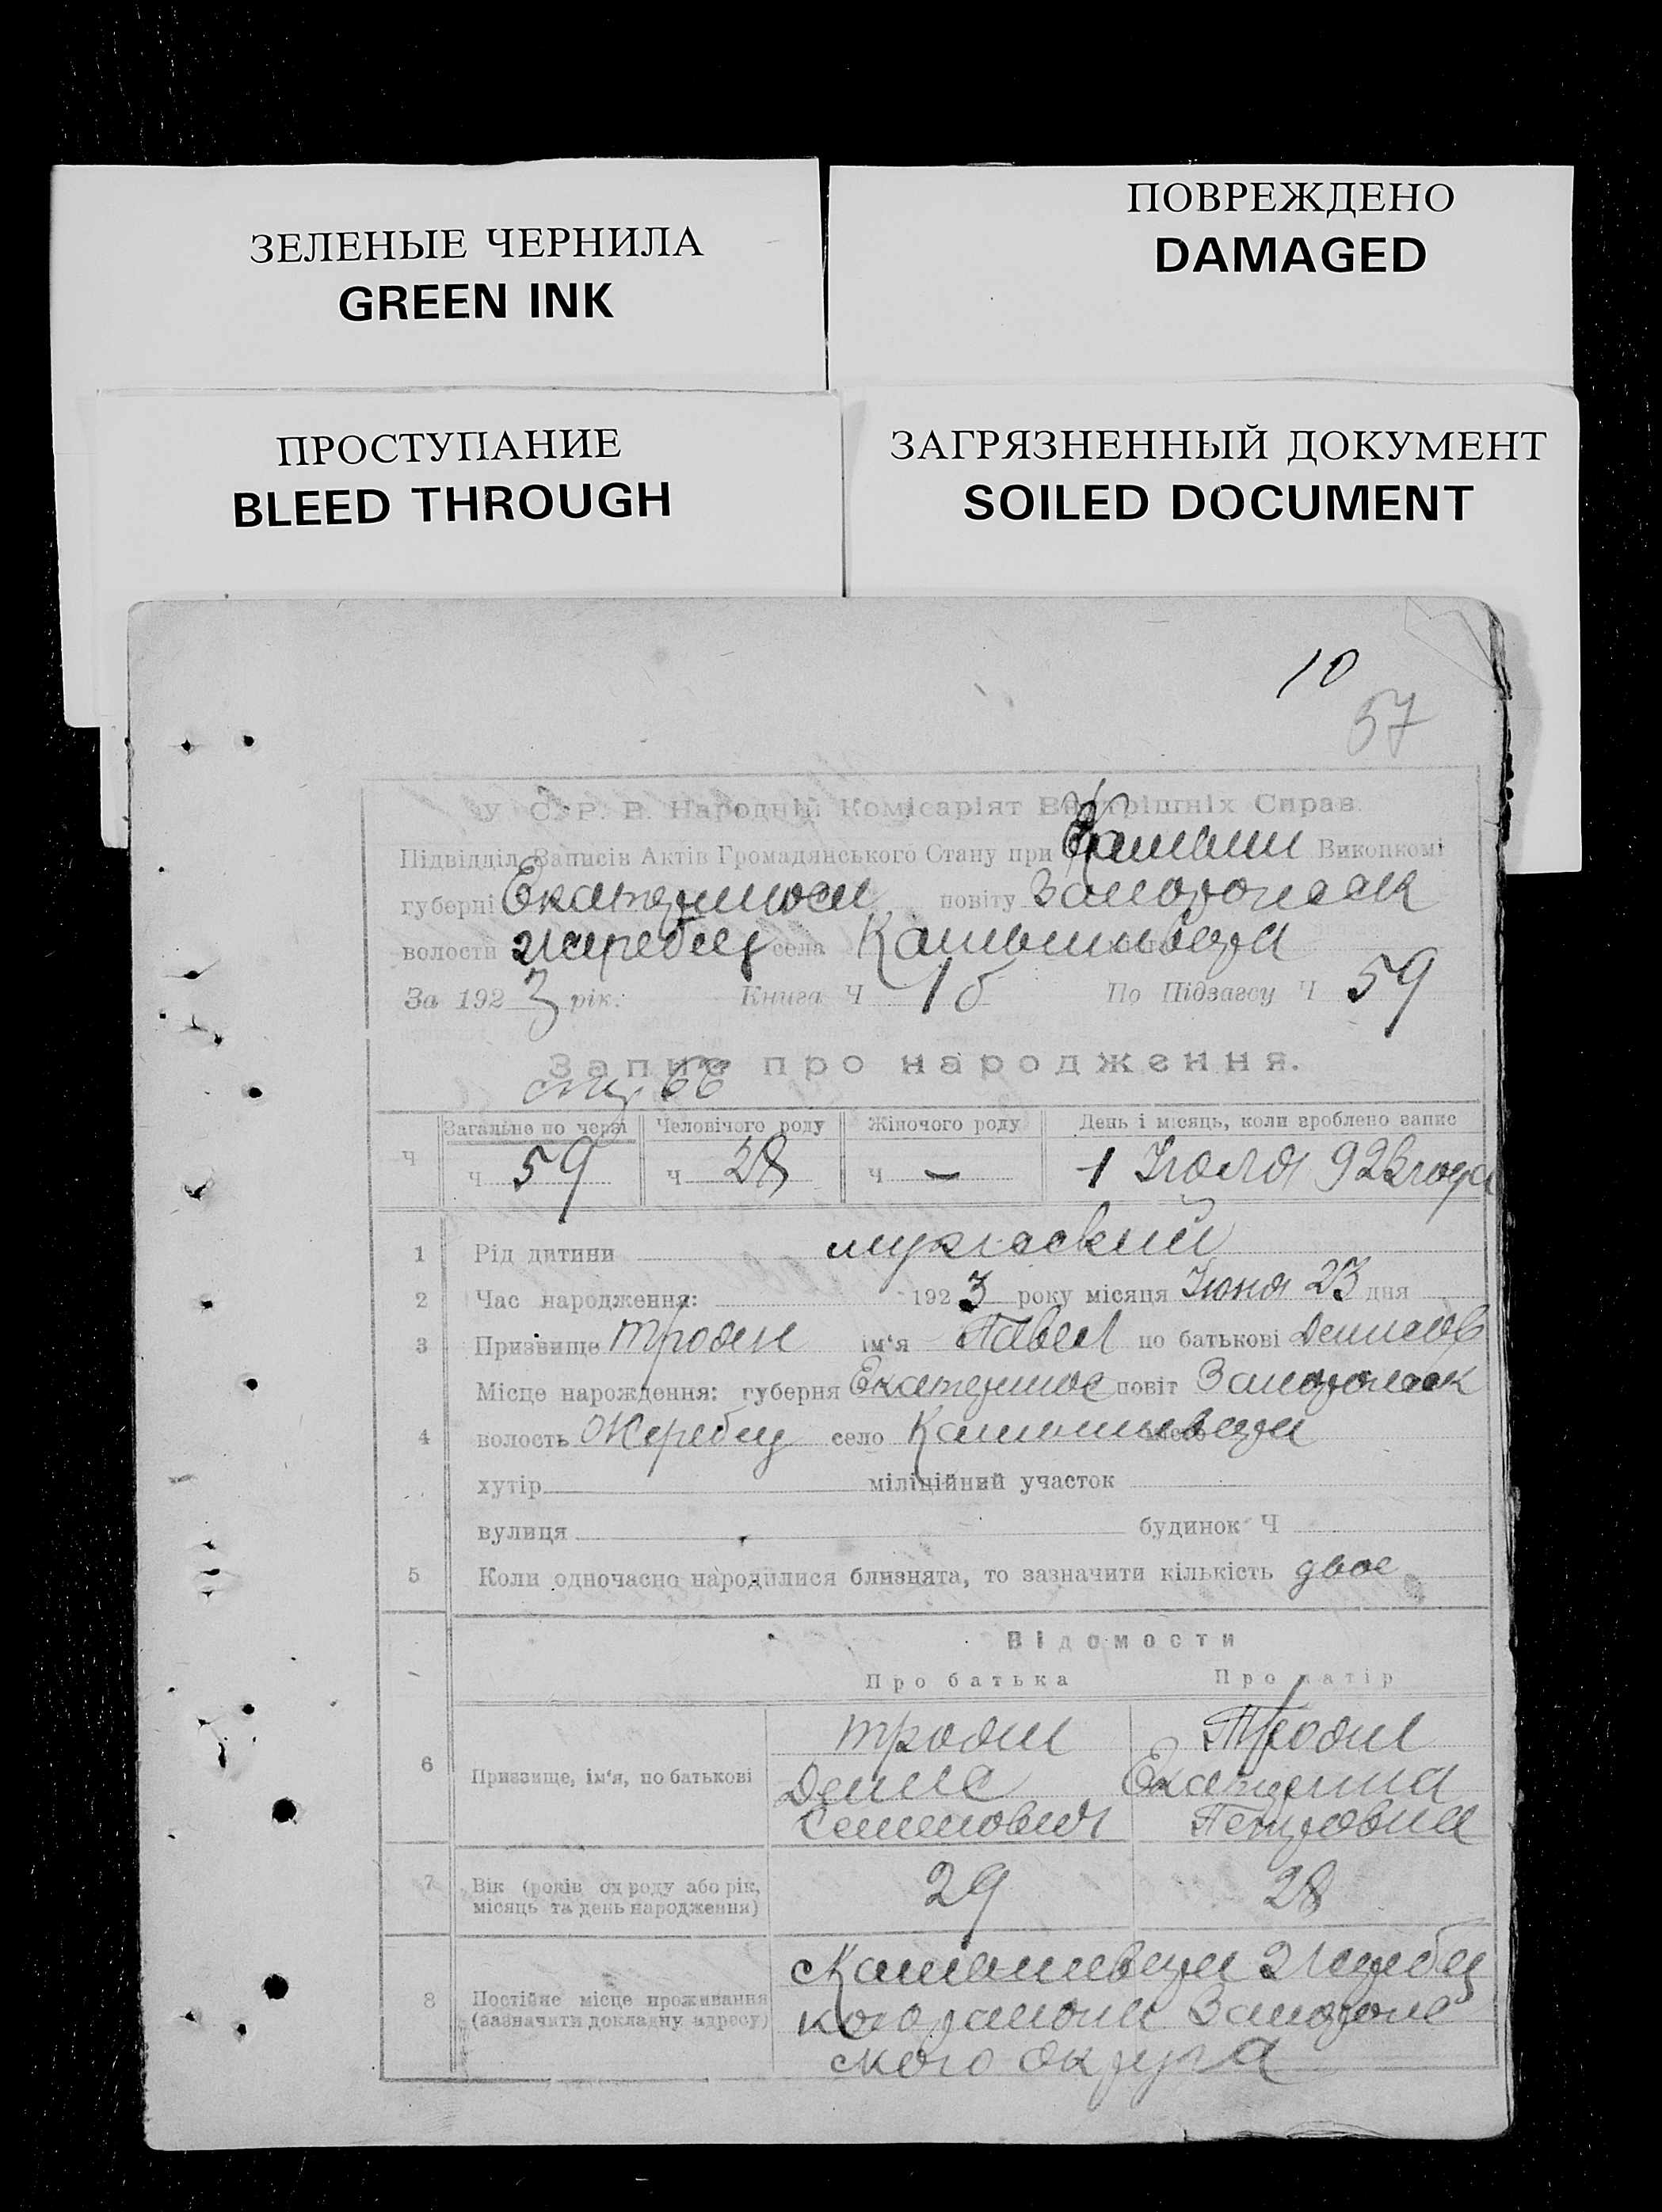 ЗЕЛЕНЫЕ ЧЕРНИЛА
GREEN INK
ПОВРЕЖДЕНО
DAMAGED
ПРОСТУПАНИЕ
BLEED THROUGH
ЗАГРЯЗНЕННЫЙ ДОКУМЕНТ
SOILED DOCUMENT
10
57
У. С. Р. Р. Народній Комісаріят Внутрішніх Справ.
Підвідділ Записів Актів Громадянського Стану при Виконкомі
губерні Екатеринос повіту Запорожск
волости Жеребец села Камышеваха
За 1923 рік. Книга Ч 1б По Підзагсу Ч 59
Запис про народження.
Загальне по черзі Человічого роду Жіночого роду День і місяць, коли зроблено запис
Ч Ч 59 Ч 28 Ч — 1 Июля 923 года
1 Рід дитини мужский
2 Час народження: 1923 року місяця Июня 23 дня
3 Призвище ім'я Павел по батькові Денисов
Місце нарождення: губерня Екатеринос повіт Запорожск
4 волость Жеребец село Камышеваха
хутір міліційний участок
вулиця будинок Ч
5 Коли одночасно народилися близнята, то зазначити кількість двое
Відомости
Про батька Про матір
6 Призвище, ім'я, по батькові
Денис Екатерина
Семенович Петровна
7 Вік (років од роду або рік, місяць та день народження) 29 28
8 Постійне місце проживання (зазначити докладну адресу) Камышеваха Жеребец
кого района Запорож
ского округа